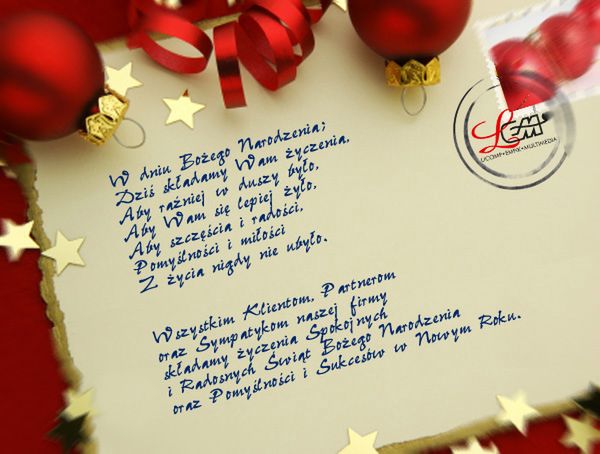 W dniu Bożego Narodzenia;
Dziś składamy Wam życzenia,
Aby raźniej w duszy było,
Aby Wam się lepiej żyło,
Aby szczęścia i radości,
Pomyślności i miłości
Z życia nigdy nie ubyło.
Wszystkim Klientom, Partnerom
oraz Sympatykom naszej firmy
składamy życzenia Spokojnych
i Radosnych Świąt Bożego Narodzenia
oraz Pomyślności i Sukcesów w Nowym Roku.
LEM
UCOMP•EMPIK•MULTIMEDIA